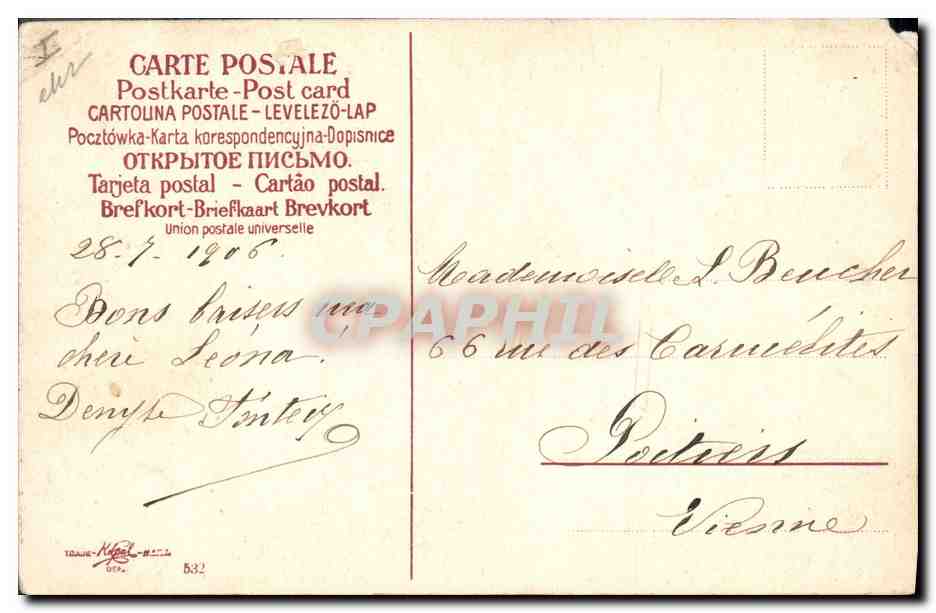 I
CARTE POSTALE
Postkarte-Post card
CARTOLINA POSTALE-LEVELEZŐ-LAP
Pocztówka-Karta korespondencyjna-Dopisnice
ОТКРЫТОЕ ПИСЬМО.
Tarjeta postal - Cartão postal.
Brefkort-Briefkaart Brevkort
Union postale universelle
28-7-1906.
Bons baisers ma
chère Léona!
Denyse
Mademoiselle L. Beucher
66 rue des Carmélites
Poitiers
Vienne
CPAPHIL
DEP.
532